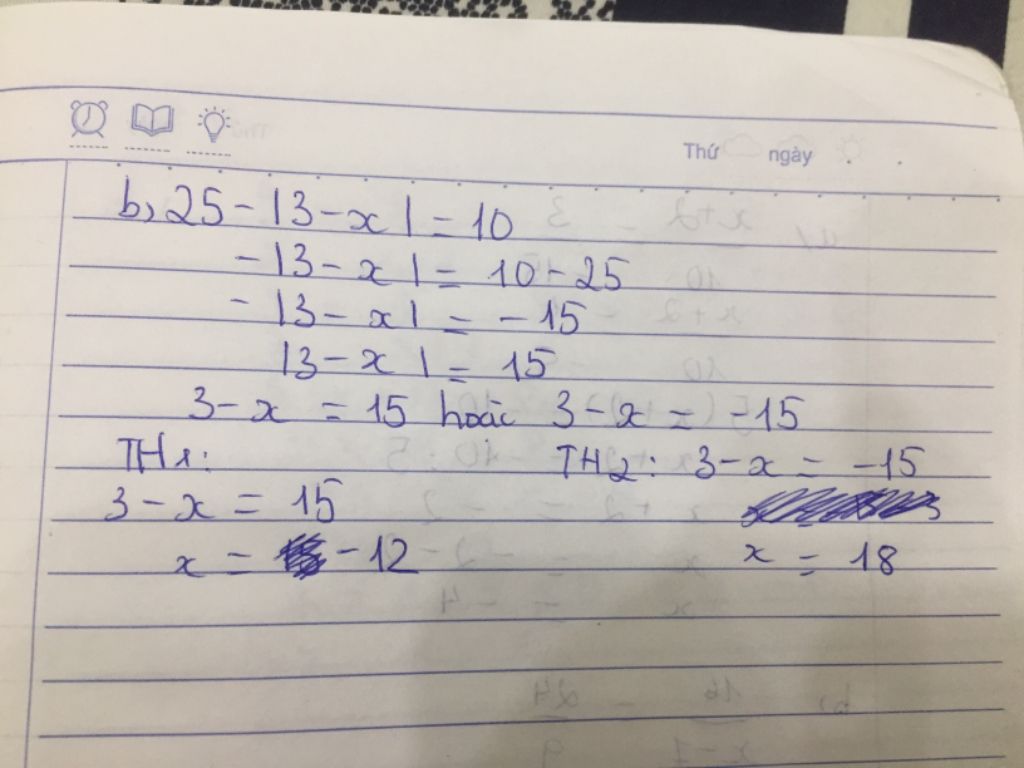 Thứ ngày
b, 25 - |3 - x| = 10
- |3 - x| = 10 - 25
- |3 - x| = - 15
|3 - x| = 15
3 - x = 15 hoặc 3 - x = -15
TH1: TH2: 3 - x = -15
3 - x = 15
x = -12 x = 18